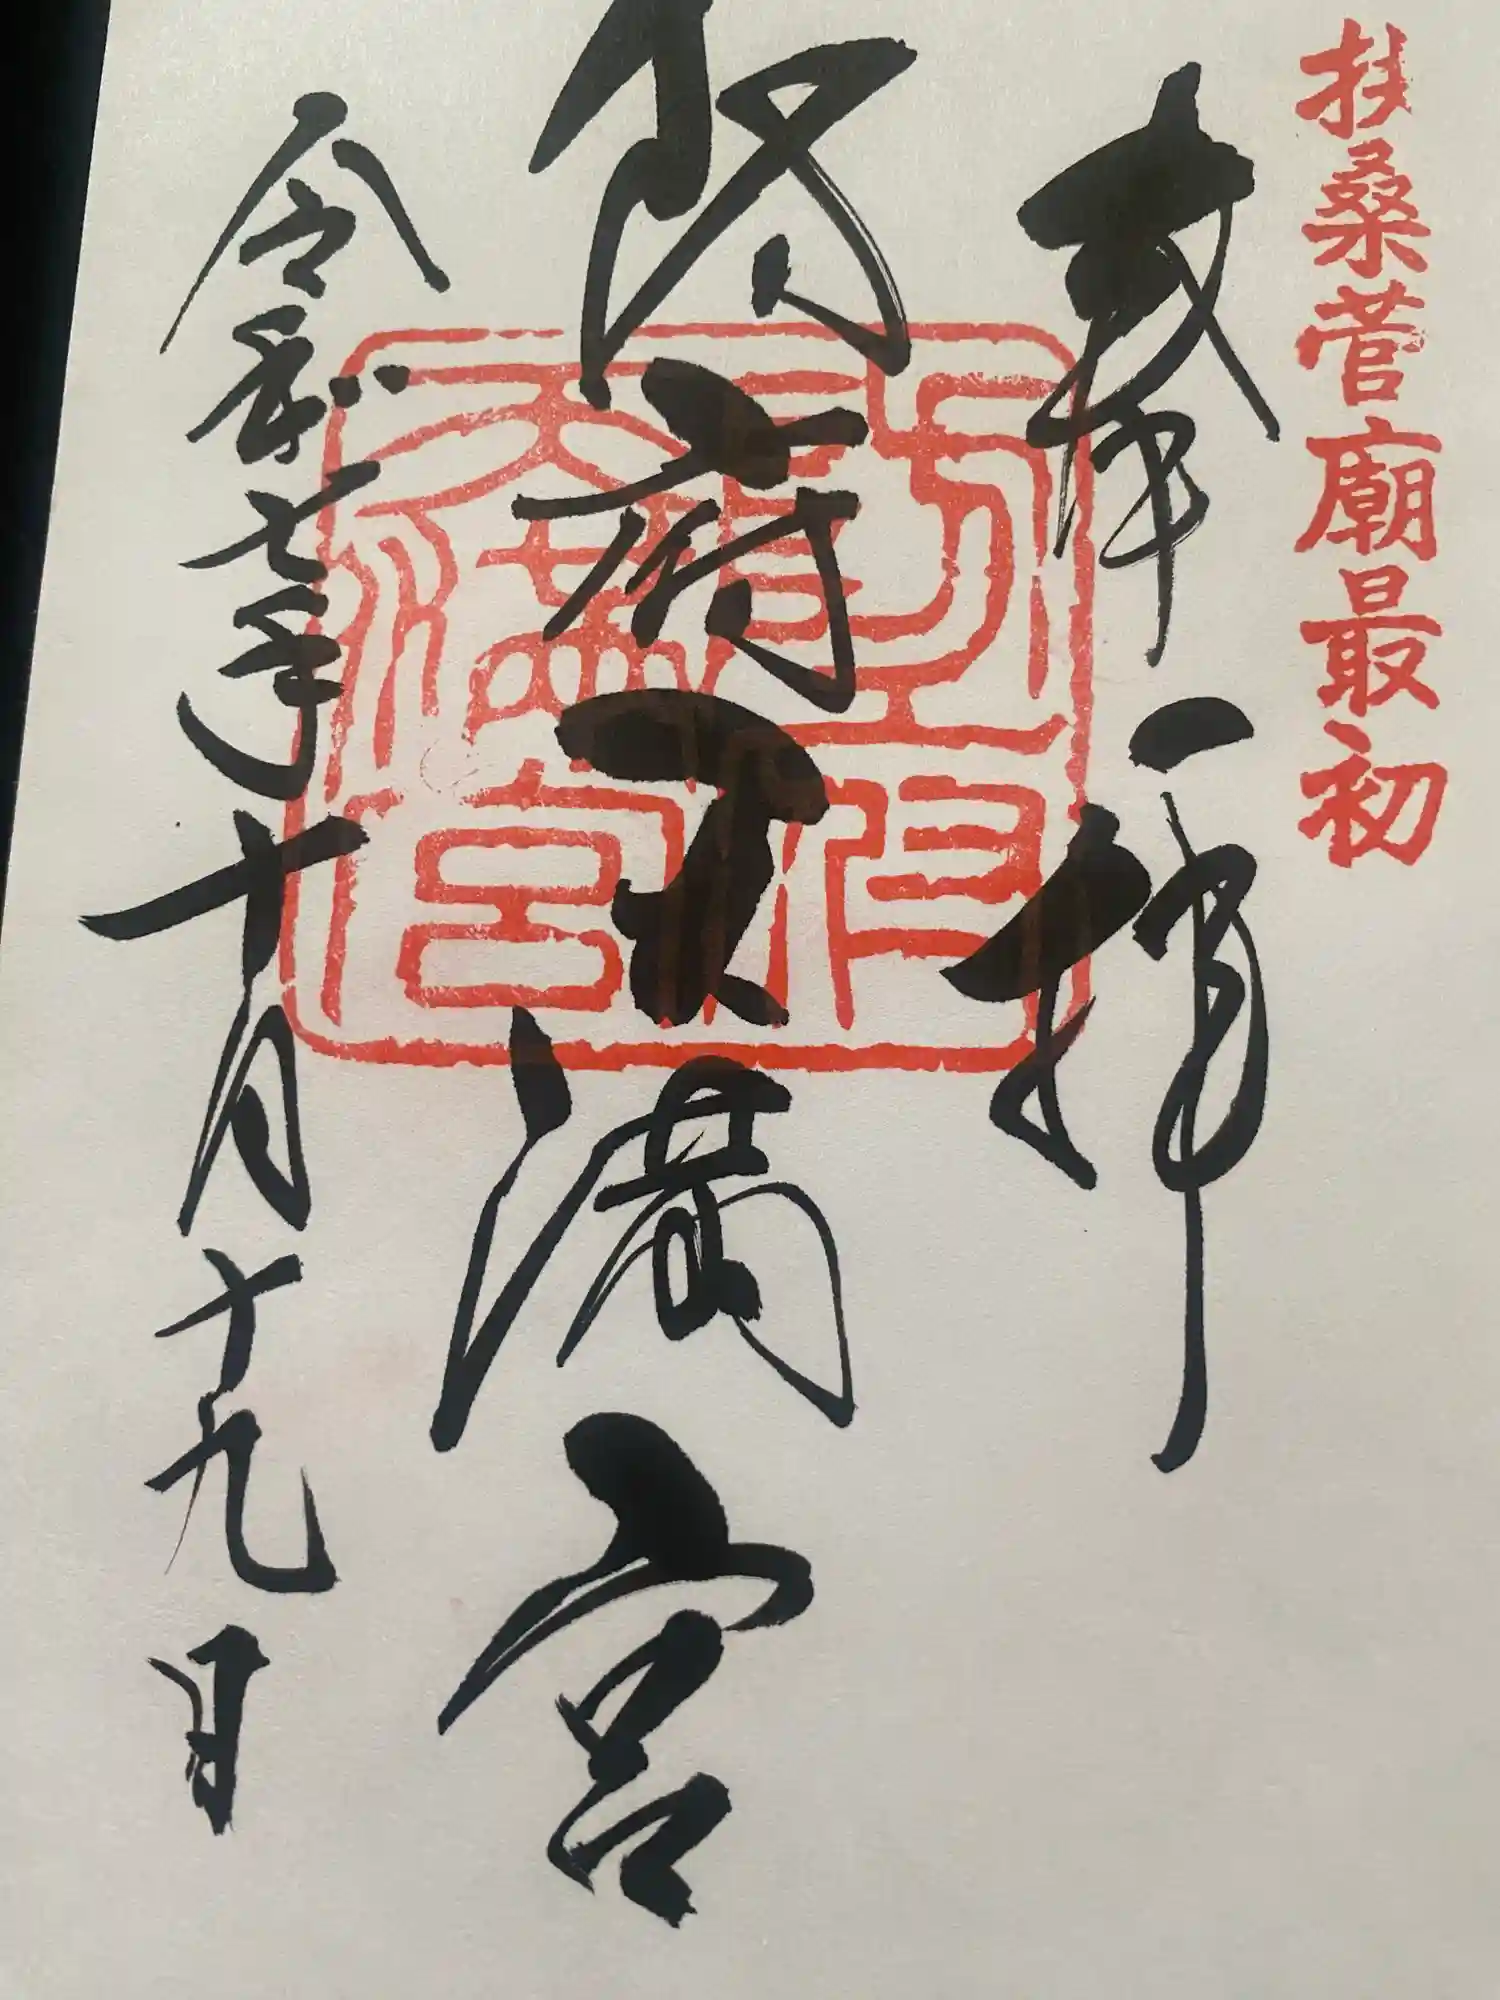 扶桑菅廟最初
奉拝
防府天満宮
令和七年十月十九日
防府天満宮